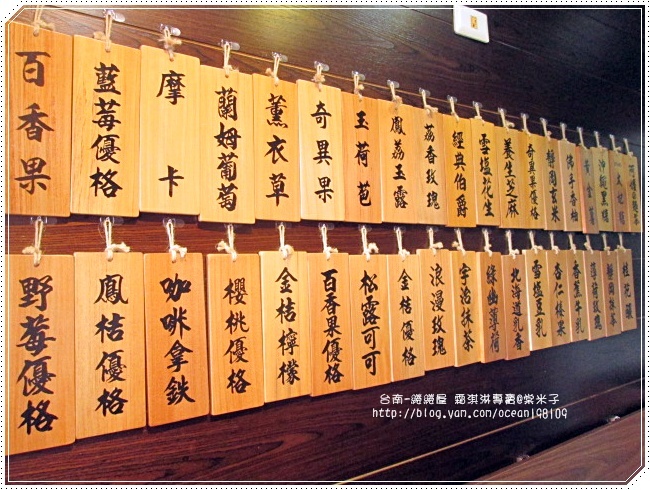 百香果
藍莓優格
摩卡
蘭姆葡萄
薰衣草
奇異果
玉荷苞
鳳荔玉露
荔香玫瑰
經典伯爵
雪塩花生
養生芝麻
奇異果優格
靜岡玄米
佛手香柚
野莓優格
鳳桔優格
咖啡拿鉄
櫻桃優格
金桔檸檬
百香果優格
松露可可
金桔優格
浪漫玫瑰
宇治抹茶
綠幽薄荷
北海道乳香
雪塩豆乳
杏仁榛果
香蕉牛乳
薄荷玫瑰
靜岡抹茶
台南-綣綣屋 霜淇淋專賣@紫米子
http://blog.yam.com/ocean198109